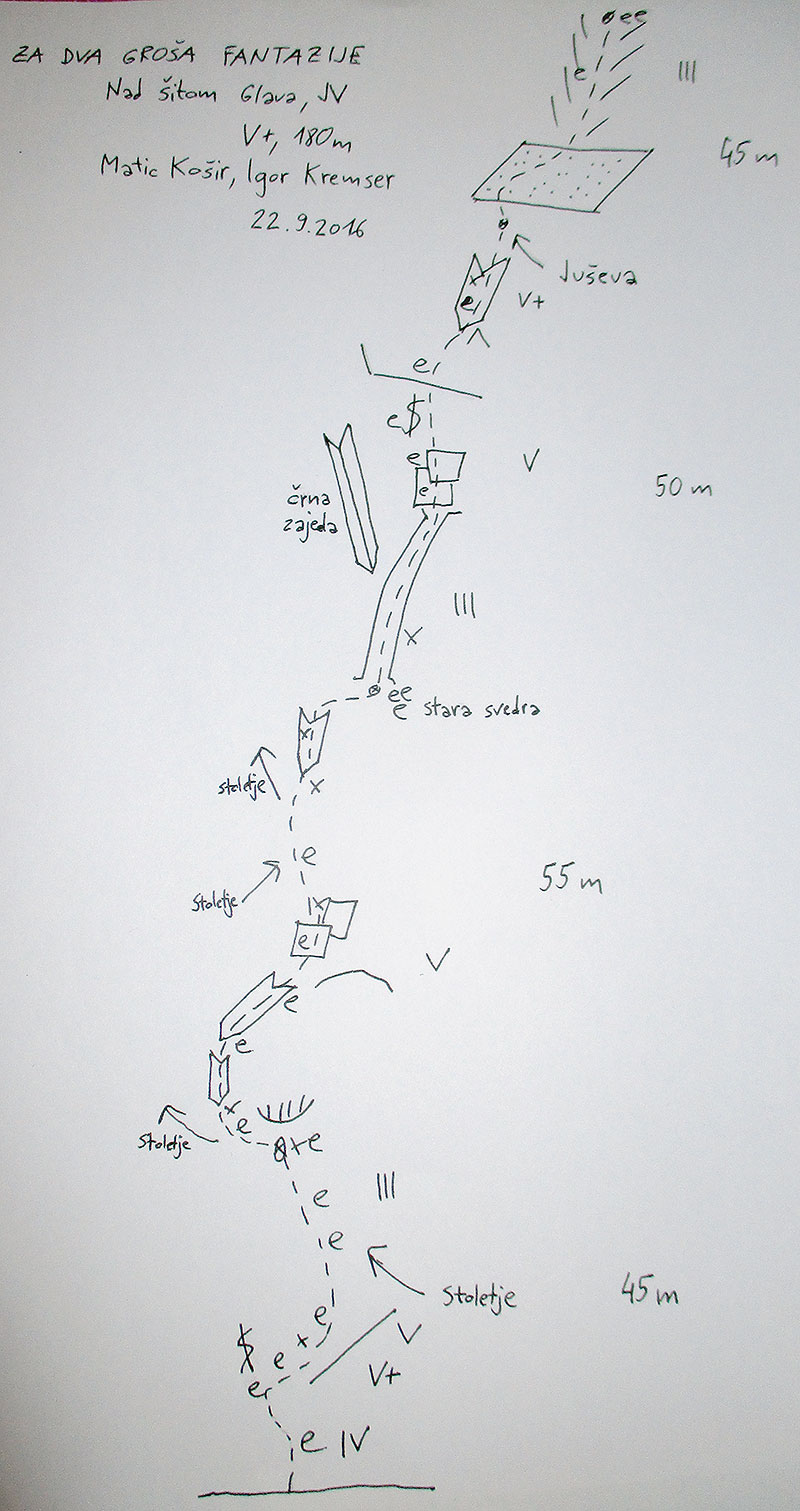 ZA DVA GROŠA FANTAZIJE
Nad šitom Glava, JV
V+, 180m
Matic Košir, Igor Kremser
22.9.2016
ee
e
III
45 m
Juševa
x
e
V+
e
e$
e
e
V
50 m
črna
zajeda
III
x
ee
e stara svedra
x
stoletje
x
e
Stoletje
x
e
55 m
V
e
e
x
e
Stoletje
x e
III
e
e
Stoletje
45 m
e
$ e x
V
V+
e
e IV